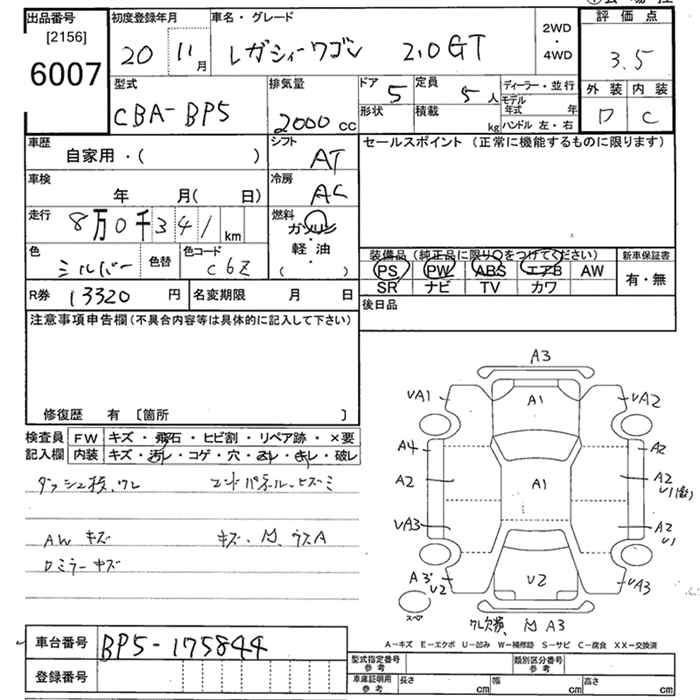 出品番号
[2156]
6007
初度登録年月
20 11月
車名・グレード
レガシィーワゴン 2.0GT
2WD
・
4WD
評価点
3.5
外装 内装
D C
型式
CBA-BP5
排気量
2000 cc
ドア 5
定員 5 人
形状
積載 kg
ディーラー・並行
モデル年式 年
ハンドル 左・右
車歴
自家用・( )
シフト
AT
セールスポイント (正常に機能するものに限ります)
車検
年 月( 日)
冷房
AC
走行
8万0千341 km
燃料
ガソリン
・
軽油
( )
色
シルバー
色替
色コード
C6Z
装備品 (純正品に限り○をつけてください)
PS PW ABS エアB AW
SR ナビ TV カワ
新車保証書
有・無
R券 13320 円
名変期限 月 日
後日品
注意事項申告欄(不具合内容等は具体的に記入して下さい)
修復歴 有 [箇所 ]
検査員記入欄
FW キズ・飛石・ヒビ割・リペア跡・×要
内装 キズ・汚レ・コゲ・穴・スレ・キレ・破レ
エンドパネル ヒズミ
AW キズ
キズ、凹、ウスA
ロミラーキズ
A3
UA1
A1
UA2
A4
A2
A2
A1
A2
U1
UA3
A2
U1
A3
U2
U2
UA3
スペア
ワレ欠損、凹 A3
A-キズ E-エクボ U-凹み W-補修跡 S-サビ C-腐食 XX-交換済
車台番号 BP5-175844
登録番号
型式指定番号
参考
類別区分番号
参考
車庫証明用
参考
長さ cm
幅 cm
高さ cm